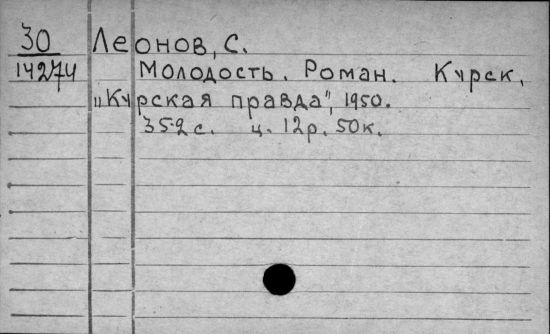 30 Леонов, С.
14274 Молодость. Роман. Курск,
„Курская правда", 1950.
352 с. ц. 12р. 50к.